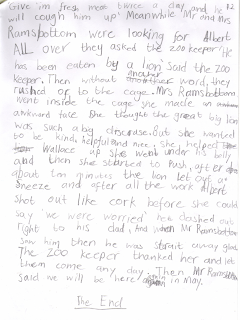 Give 'im fresh meat twice a day and he
will cough him up' Meanwhile Mr and Mrs
Ramsbottom were looking for Albert
ALL over they asked the zoo keeper 'He
has been eaten by a lion' said the zoo
keeper. Then without another word, they
rushed or to the cage. Mrs Ramsbottom
went inside the cage she made an
awkward face she thought the great big lion
was such a big disease. But she wanted
to be kind, helpful and nice, she helped
Wallace up she went under his belly
and then she started to push, after
about ten minutes the lion let out a
sneeze and after all the work Albert
shot out like cork before she could
say 'we were worried' he dashed
right to his dad, And when Mr Ramsbottom
saw him then he was strait away glad
The zoo keeper thanked her and let
them come any day. Then Mr Ramsbottom
said we will be here again in May.
The End